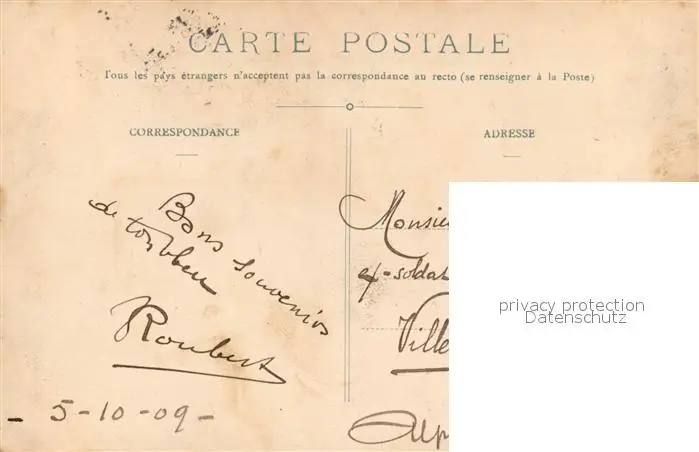 CARTE POSTALE
Tous les pays étrangers n'acceptent pas la correspondance au recto (se renseigner à la Poste)
CORRESPONDANCE
ADRESSE
Bons souvenirs
de ton
Roubert
- 5-10-09 -
Monsie
ex-soldat
Ville
Alp
privacy protection
Datenschutz